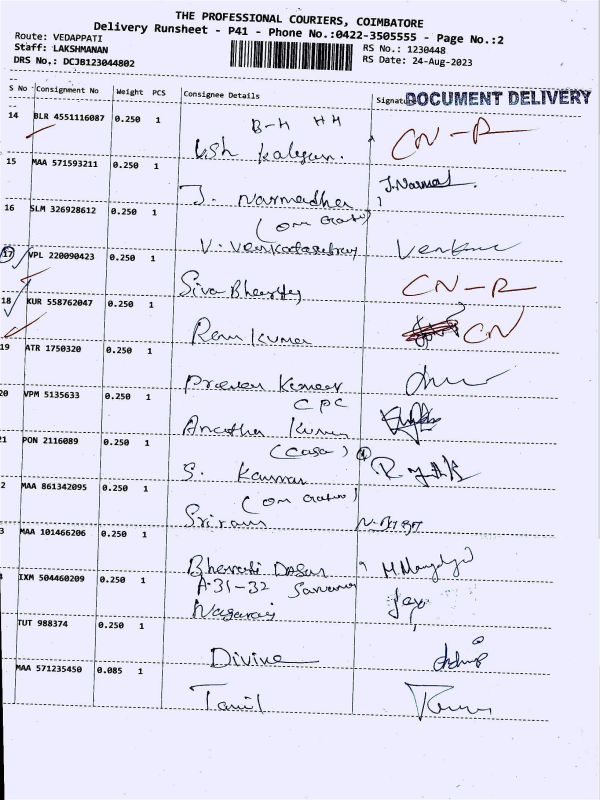 THE PROFESSIONAL COURIERS, COIMBATORE
Delivery Runsheet - P41 - Phone No.:0422-3505555 - Page No.:2
Route: VEDAPPATI
Staff: LAKSHMANAN
DRS No.: DCJB123044802
RS No.: 1230448
RS Date: 24-Aug-2023
S No Consignment No Weight PCS Consignee Details Signatu
DOCUMENT DELIVERY
14 BLR 4551116087 0.250 1 B-H HH
CN-R
15 MAA 571593211 0.250 1
J. Narmadha J.Narmad
16 SLM 326928612 0.250 1
V. Venkatasubray Venka
17 VPL 220090423 0.250 1
Siva Bharathy CN-R
18 KUR 558762047 0.250 1
Ram Kumar CN
19 ATR 1750320 0.250 1
Praveen Kumar
20 VPM 5135633 0.250 1 CPC
Anantha Kumar
21 PON 2116089 0.250 1 (Casa)
S. Kannan
2 MAA 861342095 0.250 1
Sriram
3 MAA 101466206 0.250 1
Bharathi Dasan
IXM 504460209 0.250 1 A-31-32
Nagaraj Jay
TUT 988374 0.250 1
Divine
MAA 571235450 0.085 1
Tamil